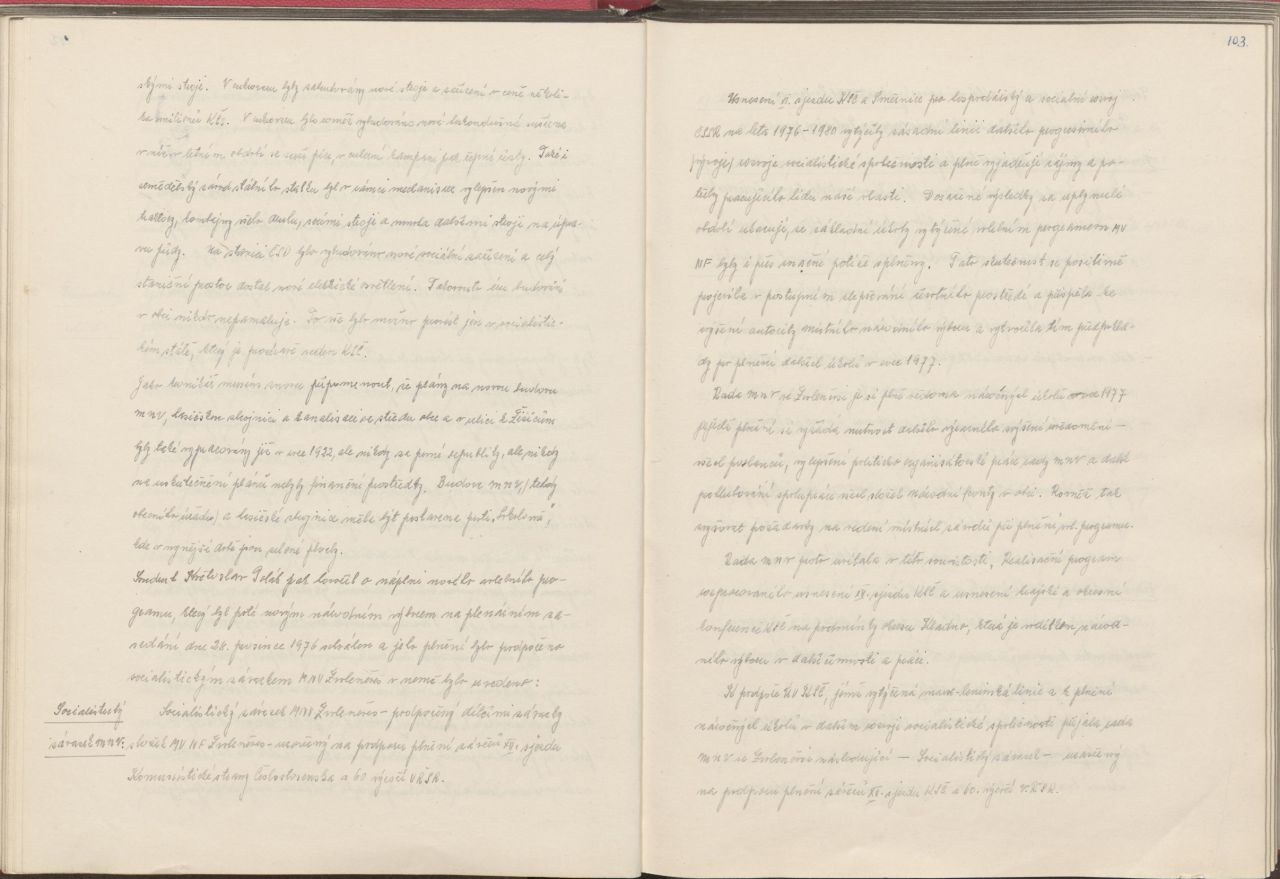 skými stroji. V cukrovaru byly zabudovány nové stroje a zařízení v ceně několi-
ka milionů Kčs. V cukrovaru bylo rovněž vybudováno nové
období se suší píce, v cukerní kampani pak řepné řízky. Také i
zemědělský závod státního statku byl v rámci mechanisace vylepšen novými
traktory, kombajny všeho druhu, secími stroji a mnoha dalšími stroji na úpra-
vu půdy. Na stanici ČSD bylo vybudováno nové sociální zařízení a celý
staniční prostor dostal nové elektrické osvětlení. Takového budování
v obci nikdo nepamatuje. To vše bylo možno provést jen v socialistic-
kém státě, který je prozíravě veden KSČ.
Jako kronikář musím znovu připomenout, že plány na novou budovu
MNV, hasičskou zbrojnici a kanalisaci ve středu obce a v ulici k Líšicům
byly také vypracovány již v roce 1922, ale nikdy za první republiky, ale nikdy
na uskutečnění plánů nebyly finanční prostředky. Budova MNV, (tehdy
obecního úřadu) a hasičská zbrojnice měla být postavena proti „Sokolovně",
kde v nynější době jsou zelené plochy.
Soudruh Polák pak hovořil o náplni nového volebního pro-
gramu, který byl poté novým národním výborem na plenárním za-
sedání dne 28. prosince 1976 schválen a jeho plnění bylo podpořeno
socialistickým závazkem MNV Zvoleněves v němž bylo uvedeno:
Socialistický
závazek MNV:
Socialistický závazek MNV Zvoleněves – podpořený dílčími závazky
složek MV NF Zvoleněves – uzavřený na podporu plnění závěrů XV. sjezdu
Komunistické strany Československa a 60 výročí VŘSR.
103.
Usnesení XV. sjezdu KSČ a Směrnice pro hospodářský a sociální rozvoj
ČSSR na léta 1976–1980 vytyčily zásadní linii dalšího progresivního
(vývoje) rozvoje socialistické společnosti a plně vyjadřují zájmy a po-
třeby pracujícího lidu naší vlasti. Dosažené výsledky za uplynulé
období ukazují, že základní úkoly vytyčené volebním programem MV
NF byly i přes značné potíže splněny. Tato skutečnost se positivně
projevila v postupném zlepšování životního prostředí a přispěla ke
zvýšení autority místního národního výboru a vytvořila tím předpokla-
dy pro plnění dalších úkolů v roce 1977.
Rada MNV ve Zvoleněvsi je si plně vědoma náročných úkolů v roce 1977
jejichž plnění si vyžádá nutnost dalšího výrazného zvýšení uvědomění –
všech poslanců, vylepšení politicko organisátorské práce rady MNV a další
prohlubování spolupráce všech složek národní fronty v obci. Rovněž tak
zvyšovat požadavky na vedení místních závodů při plnění vol. programu.
Rada MNV proto uvítala v této souvislosti, Realisační program
rozpracovaného usnesení XV. sjezdu KSČ a usnesení krajské a okresní
konference KSČ na podmínky okresu Kladno, která je vodítkem národ-
ního výboru v další činnosti a práci.
K podpoře ÚV KSČ, jímž vytyčená marx-leninská linie a k plnění
náročných úkolů v dalším rozvoji socialistické společnosti přijala rada
MNV ve Zvoleněvsi následující – Socialistický závazek – uzavřený
na podporu plnění závěrů XV. sjezdu KSČ a 60. výročí VŘSR.